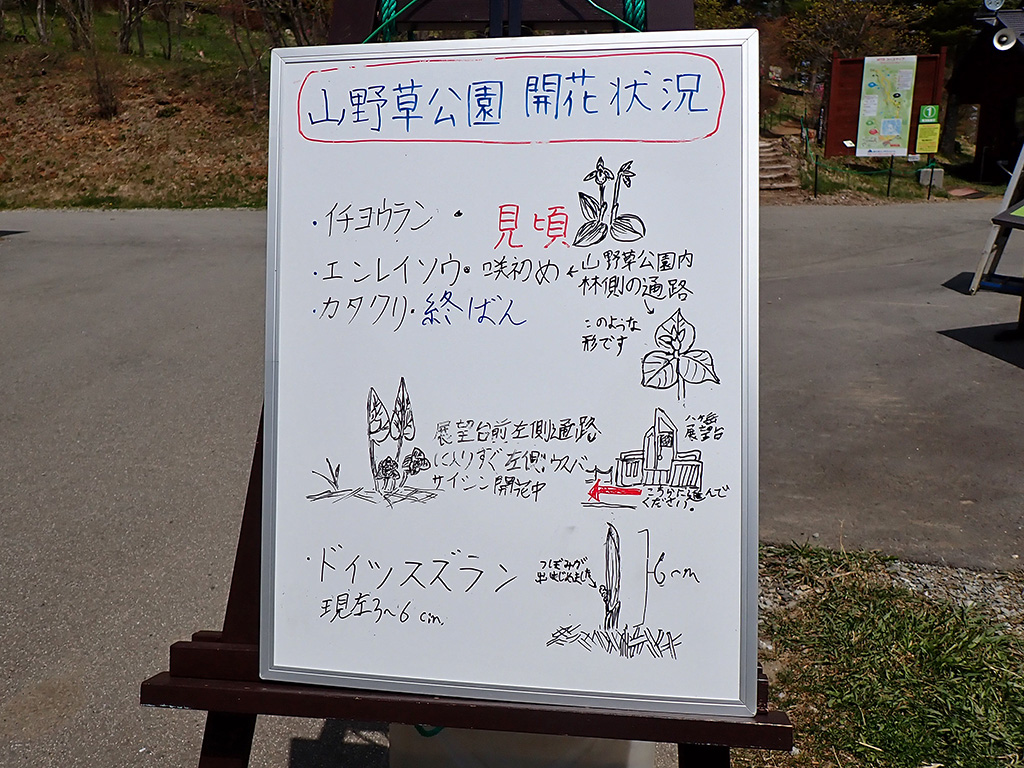 山野草公園 開花状況
・イチヨウラン・ 見頃
・エンレイソウ・咲初め ←山野草公園内
林側の通路
・カタクリ・終ばん
このような
形です
展望台前左側通路
に入りすぐ左側ウスバ
サイシン開花中
八ヶ岳
展望台
こちらに進んで
ください。
・ドイツスズラン
現在3〜6cm
つぼみが
出はじめました
6cm
①